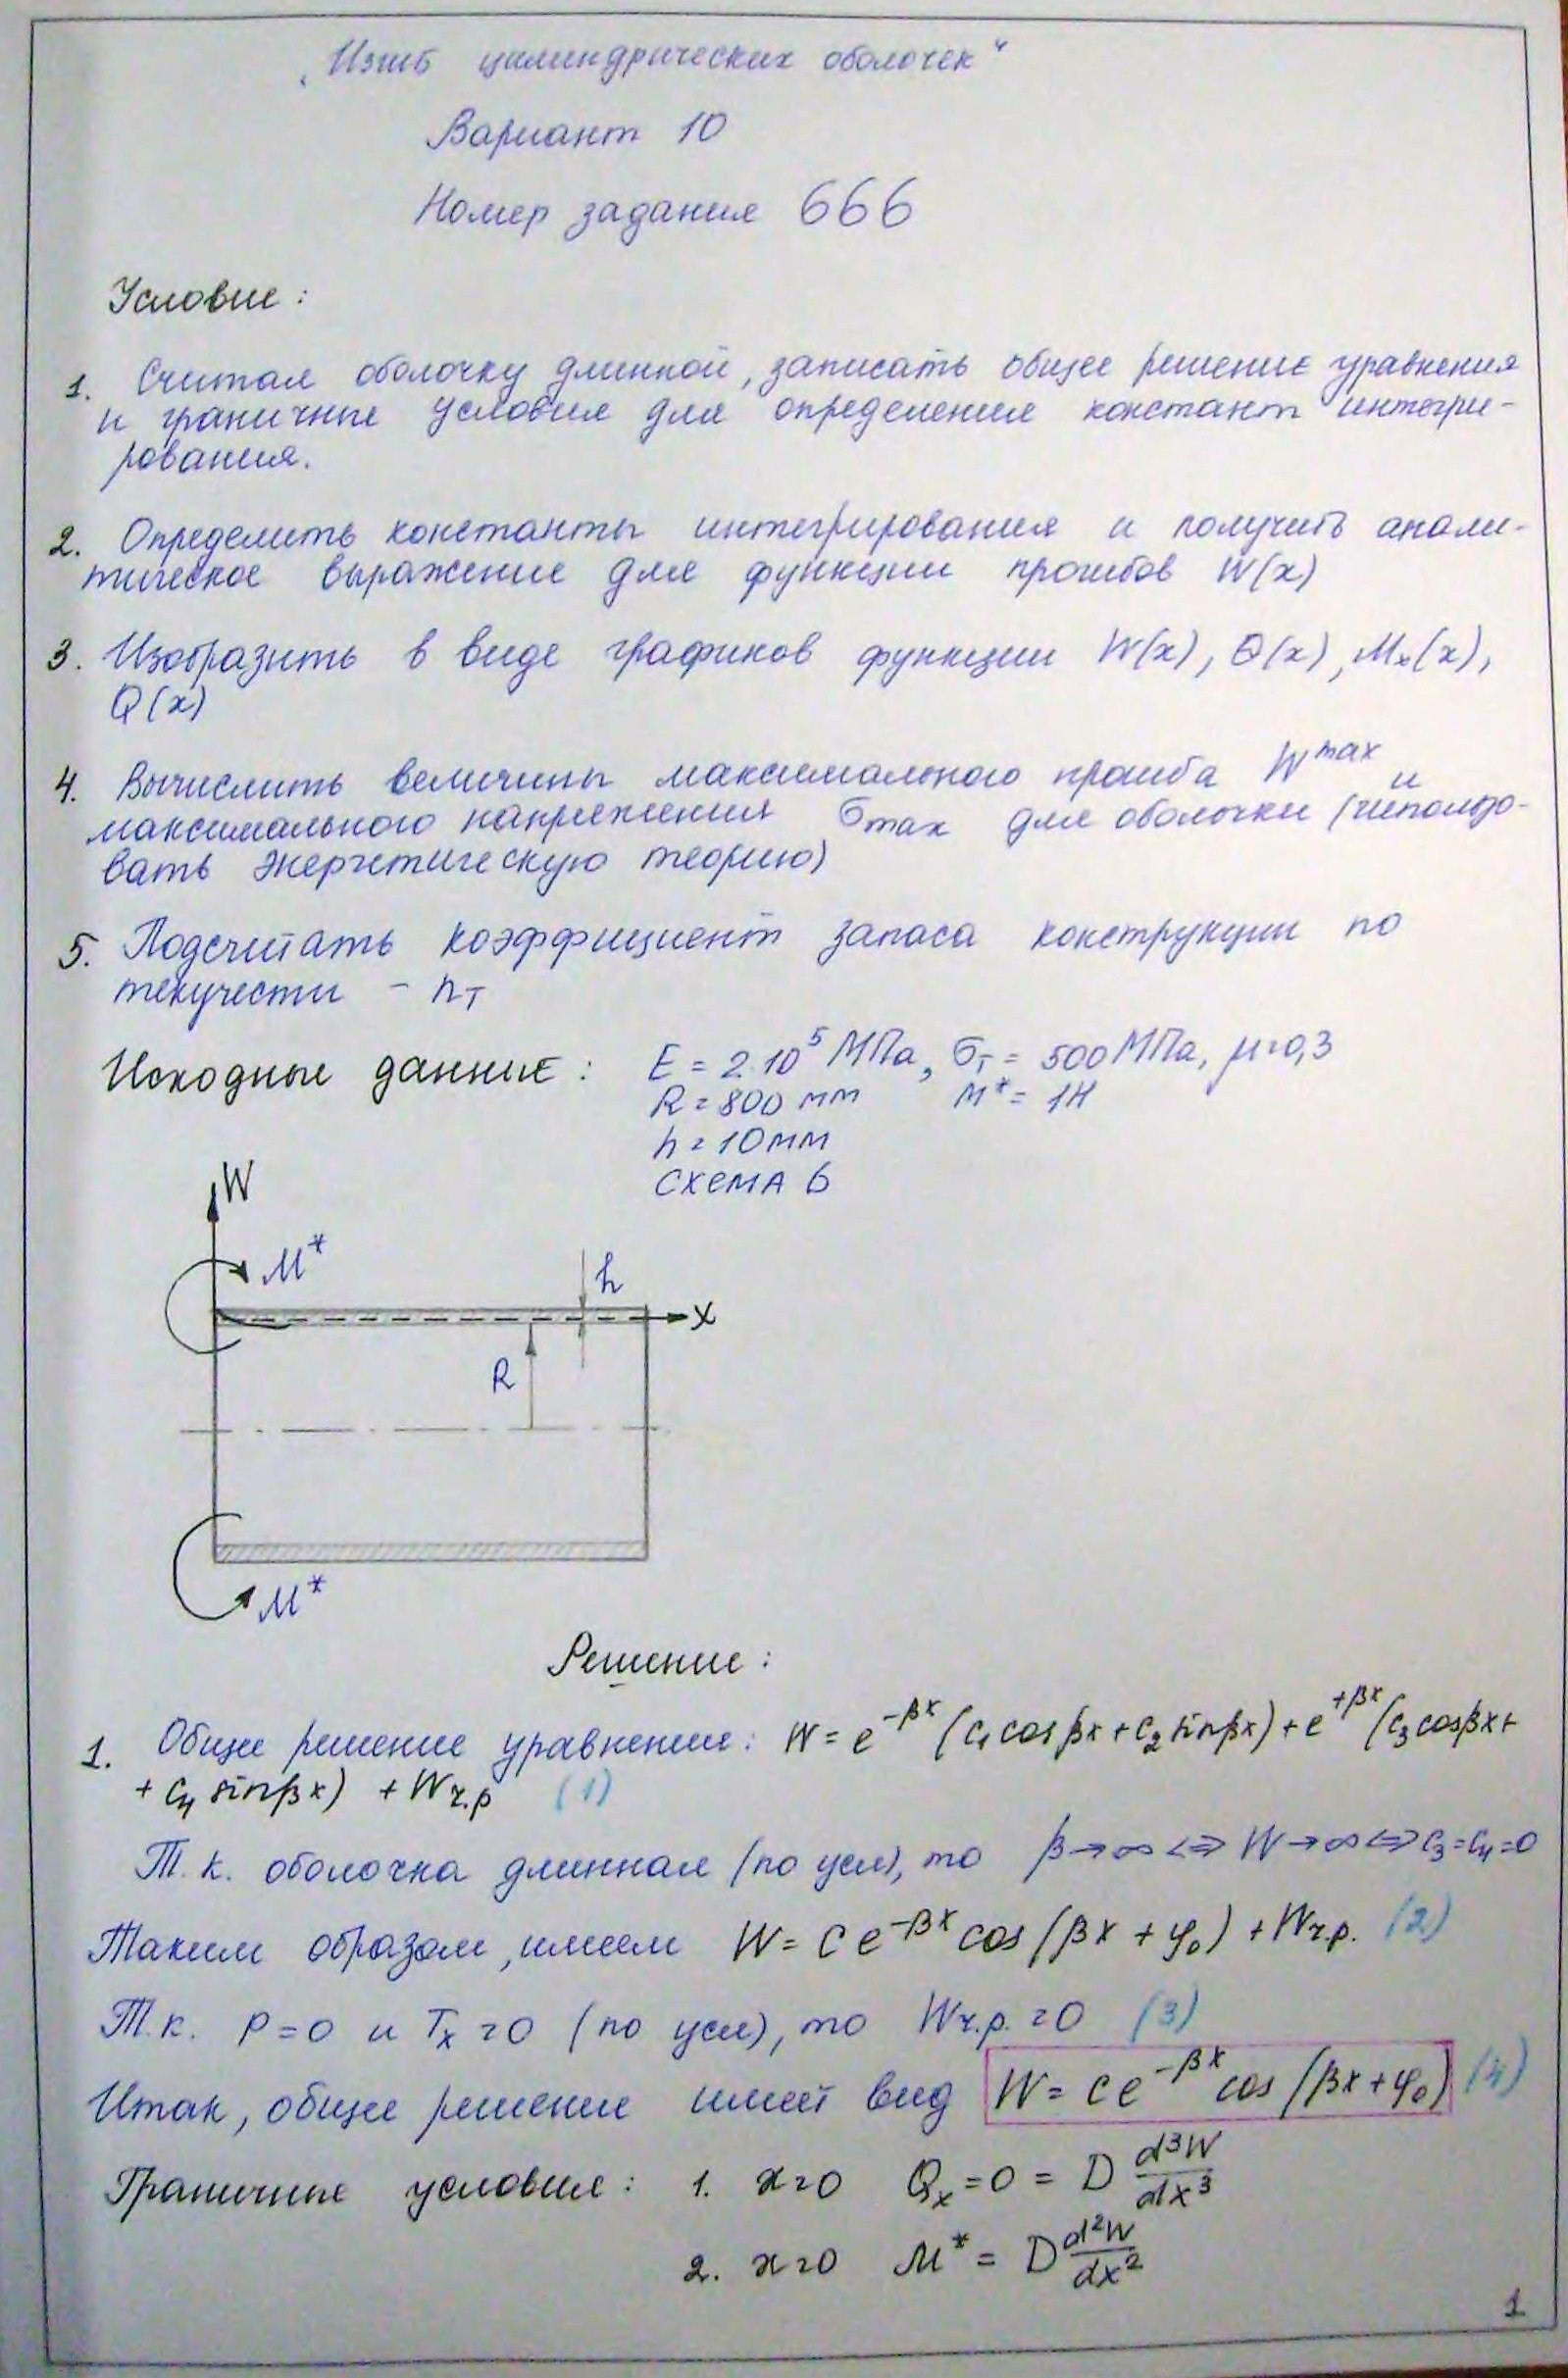 „Изгиб цилиндрических оболочек“
Вариант 10
Номер задания 666
Условие:
1. Считая оболочку длинной, записать общее решение уравнения
и граничные условия для определения констант интегри-
рования.
2. Определить константы интегрирования и получить анали-
тическое выражение для функции прогибов W(x)
3. Изобразить в виде графиков функции W(x), θ(x), Mx(x),
Q(x)
4. Вычислить величины максимального прогиба W^max и
максимального напряжения σmax для оболочки (использо-
вать энергетическую теорию)
5. Подсчитать коэффициент запаса конструкции по
текучести - nТ
Исходные данные: E = 2·10^5 МПа, σТ = 500 МПа, μ=0,3
R = 800 мм M* = 1H
h = 10 мм
СХЕМА 6
W
M*
h
x
R
M*
Решение:
1. Общее решение уравнения: W = e^-βx (c1 cos βx + c2 sin βx) + e^+βx (c3 cos βx +
+ c4 sin βx) + Wч.р (1)
Т.к. оболочка длинная (по усл), то β→∞ <=> W→∞ <=> c3=c4=0
Таким образом, имеем W = C e^-βx cos (βx + φ0) + Wч.р. (2)
Т.к. P=0 и Tx=0 (по усл), то Wч.р.=0 (3)
Итак, общее решение имеет вид W = C e^-βx cos (βx + φ0) (4)
Граничные условия: 1. x=0 Qx = 0 = D d³W/dx³
2. x=0 M* = D d²W/dx²
1